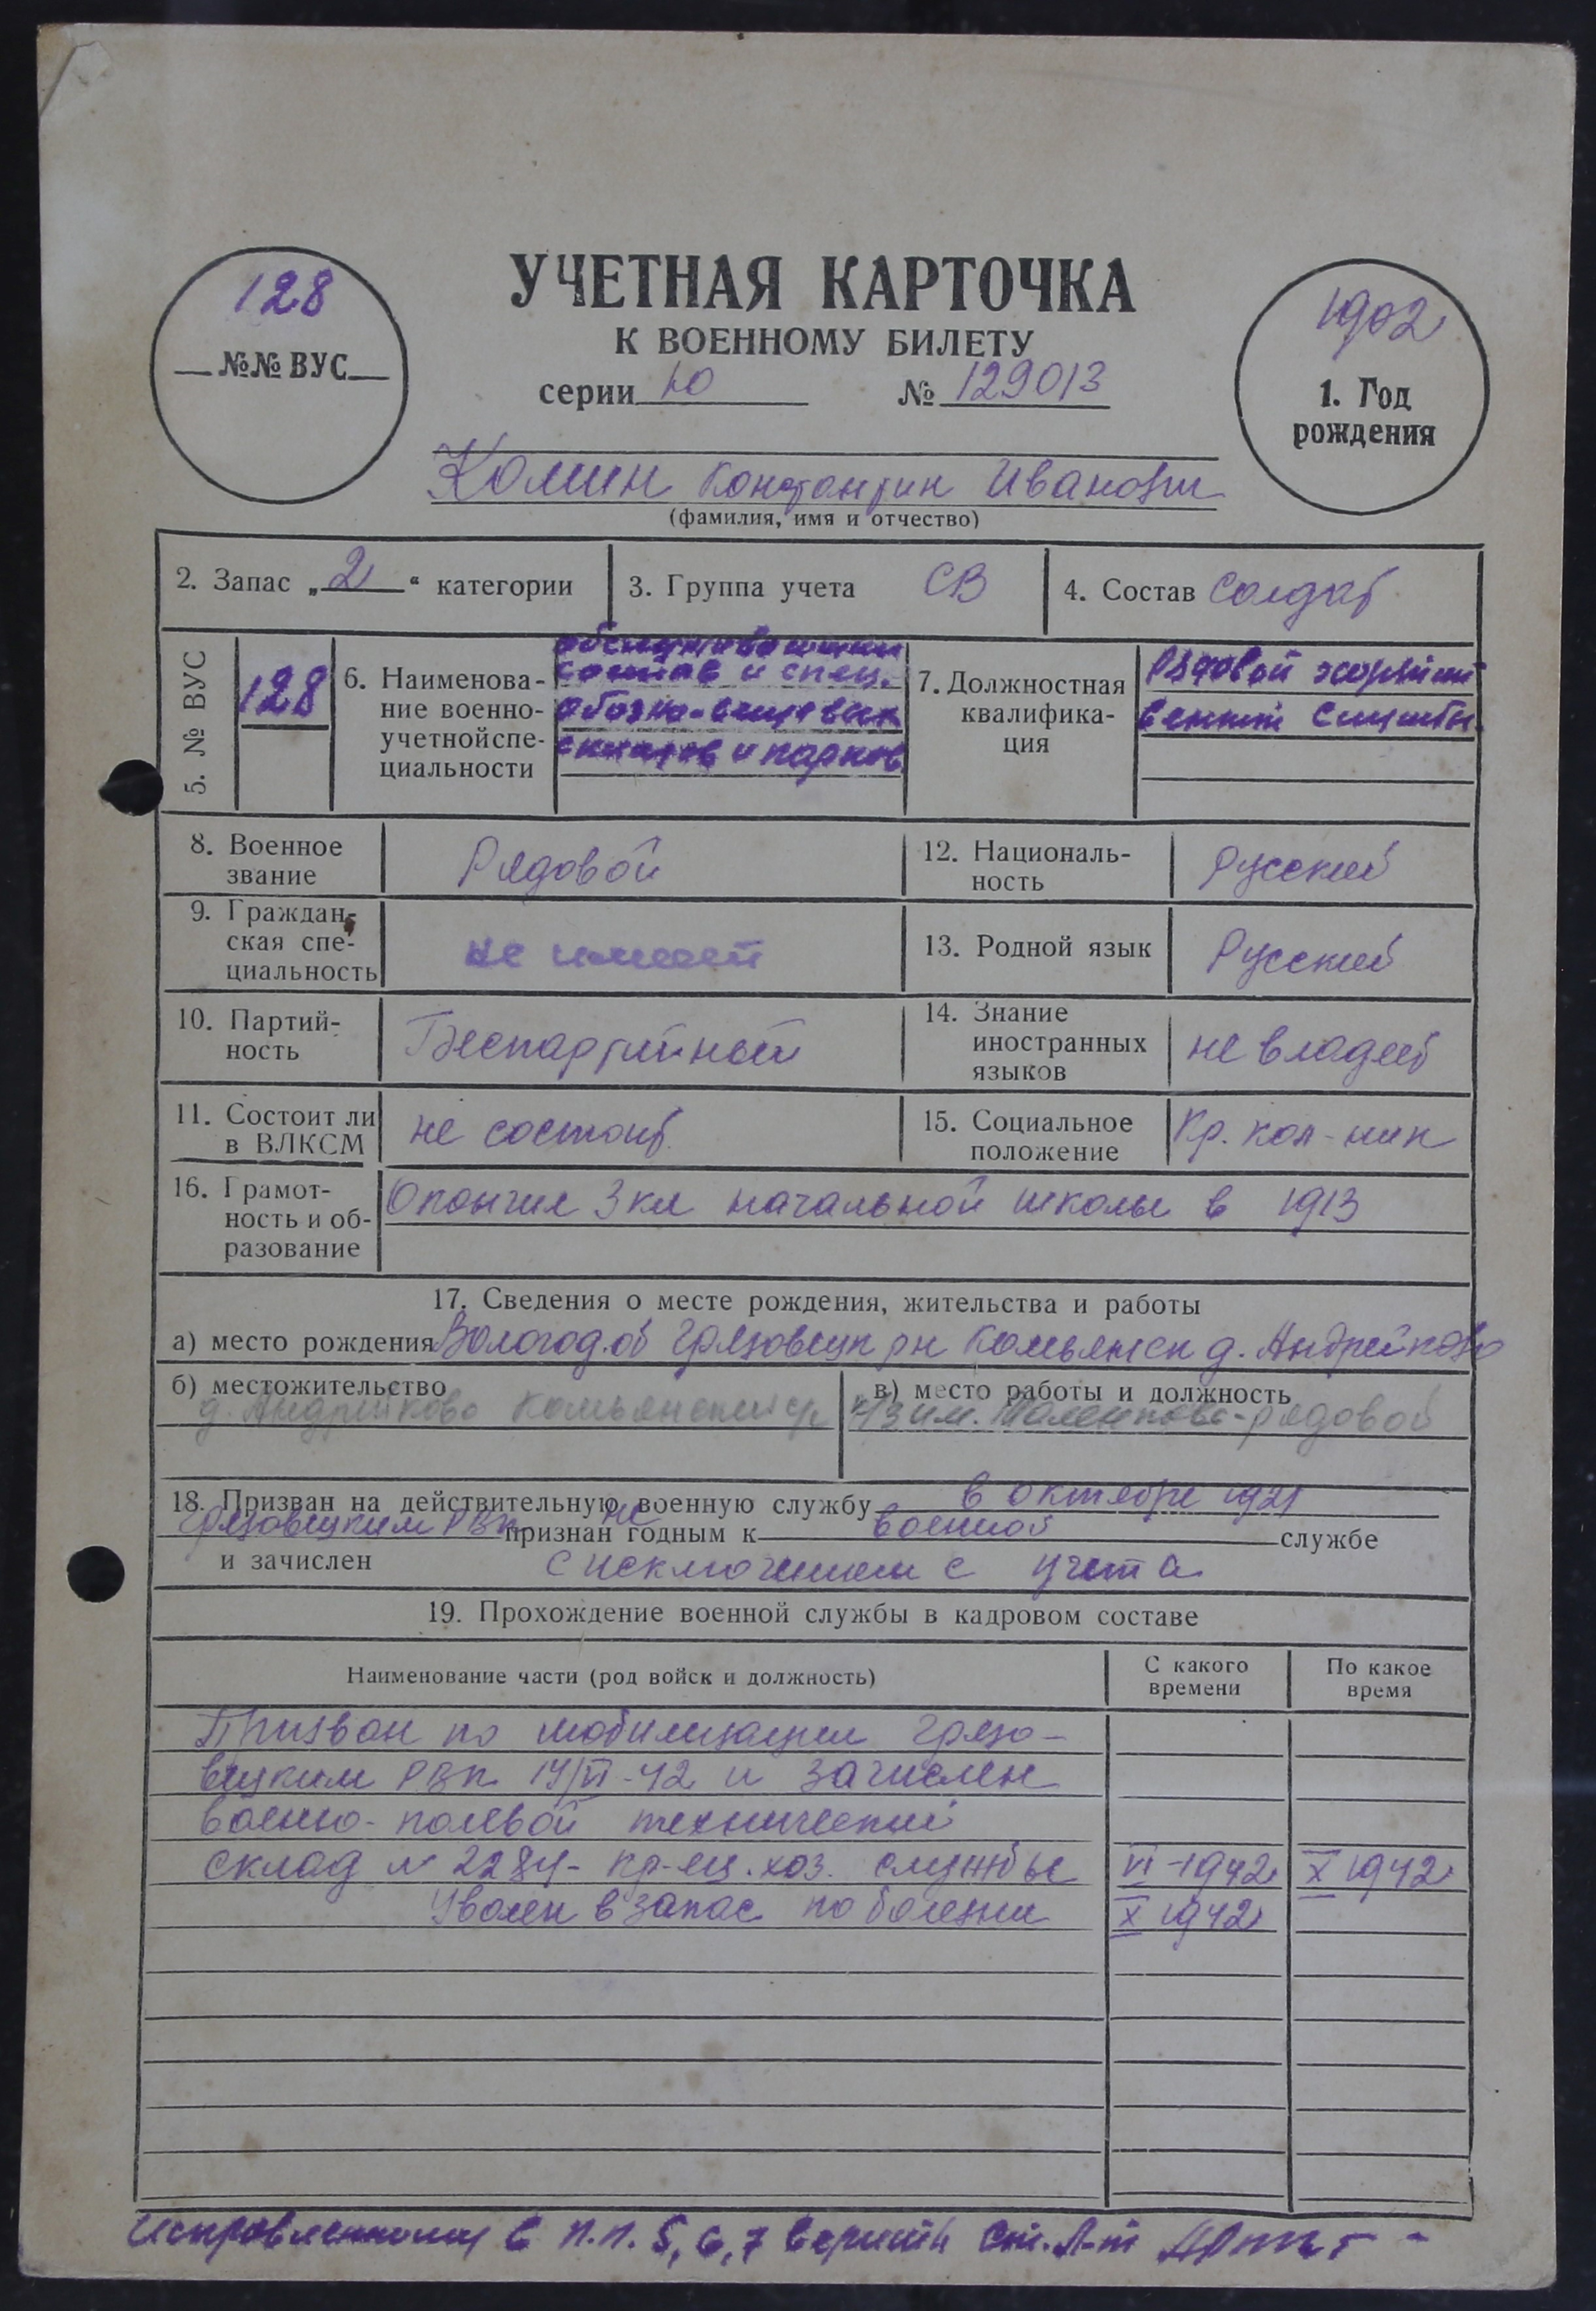 128
№№ ВУС
УЧЕТНАЯ КАРТОЧКА
К ВОЕННОМУ БИЛЕТУ
серии Ю № 129013
1902
1. Год
рождения
Комин Константин Иванович
(фамилия, имя и отчество)
2. Запас „2“ категории
3. Группа учета СВ
4. Состав Солдат
5. № ВУС
128
6. Наименова-
ние военно-
учетнойспе-
циальности
состав и спец.
обозно-вещевых
складов и парков
7. Должностная
квалифика-
ция
Рядовой хозяйст
венной службы.
8. Военное
звание
Рядовой
9. Граждан-
ская спе-
циальность
не имеет
10. Партий-
ность
Беспартийный
11. Состоит ли
в ВЛКСМ
не состоит.
12. Националь-
ность
Русский
13. Родной язык
Русский
14. Знание
иностранных
языков
не владеет
15. Социальное
положение
Кр. кол-ник
16. Грамот-
ность и об-
разование
Окончил 3 кл начальной школы в 1913
17. Сведения о месте рождения, жительства и работы
а) место рождения Вологод. об Грязовецк рн Комьянск д. Андрейково
б) местожительство
д. Андрейково Комьянский с/с
в) место работы и должность
к-з им. Маленкова - рядовой
18. Призван на действительную военную службу в октябре 1921
Грязовецким РВк признан не годным к военной службе
и зачислен с исключением с учета
19. Прохождение военной службы в кадровом составе
Наименование части (род войск и должность)
С какого
времени
По какое
время
Призван по мобилизации Грязо-
вецким РВк 14/VI-42 и зачислен
военно-полевой технический
склад № 2284 - кр-ец. хоз. службы VI-1942 X 1942
Уволен в запас по болезни X 1942
Исправленному в п.п. 5, 6, 7 верить Ст. Л-т